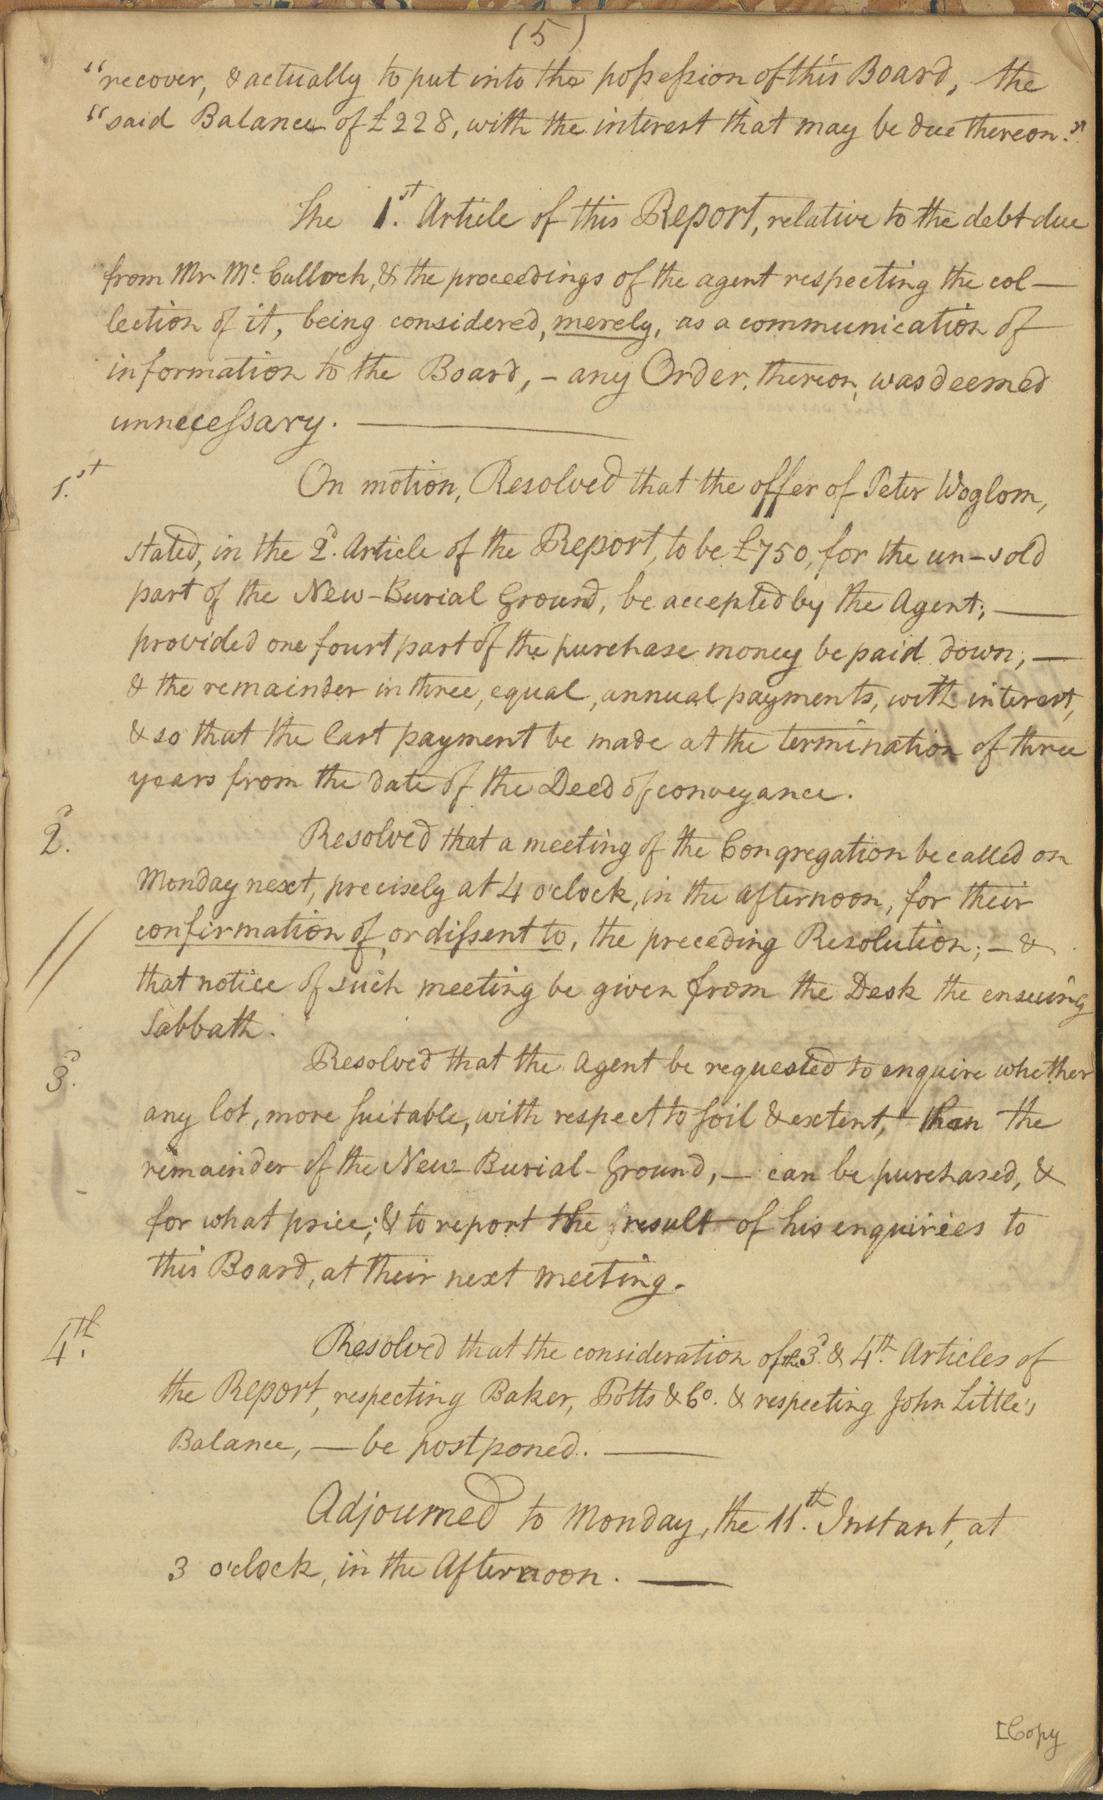 (5)
"recover, & actually to put into the possession of this Board, the
"said Balance of £228, with the interest that may be due thereon."
The 1.st Article of this Report, relative to the debt due
from Mr. Mc. Culloch, & the proceedings of the agent respecting the col-
lection of it, being considered, merely, as a communication of
information to the Board, - any Order, thereon, was deemed
unnecessary. —
1.st On motion, Resolved that the offer of Peter Woglom,
stated, in the 2.d Article of the Report, to be £750, for the un-sold
part of the New-Burial Ground, be accepted by the Agent; —
provided one fourt part of the purchase money be paid down; —
& the remainder in three, equal, annual payments, with interest,
& so that the last payment be made at the termination of three
years from the date of the Deed of conveyance.
2.d Resolved that a meeting of the Congregation be called on
Monday next, precisely at 4 o'clock, in the afternoon, for their
// confirmation of, or dissent to, the preceding Resolution; - &
that notice of such meeting be given from the Desk the ensuing
Sabbath.
3.d Resolved that the Agent be requested to enquire whether
any lot, more suitable, with respect to soil & extent, than the
remainder of the New-Burial-Ground, — can be purchased, &
for what price; & to report the result of his enquiries to
this Board, at their next meeting.
4.th Resolved that the consideration of the 3.d & 4.th Articles of
the Report, respecting Baker, Potts & Co. & respecting John Little's
Balance, — be postponed. —
Adjourned to Monday, the 11.th Instant, at
3 o'clock, in the Afternoon. —
[Copy